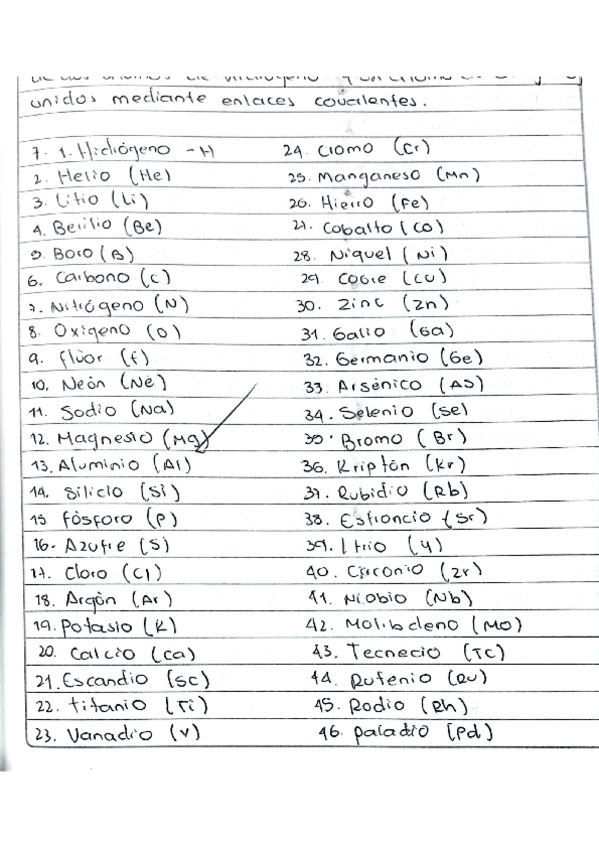 unidos mediante enlaces covalentes.
7. 1. Hidrógeno - H
2. Helio (He)
3. Litio (Li)
4. Berilio (Be)
5. Boro (B)
6. Carbono (C)
7. Nitrógeno (N)
8. Oxigeno (O)
9. flúor (f)
10. Neón (Ne)
11. Sodio (Na)
12. Magnesio (Mg)
13. Aluminio (Al)
14. Silicio (Si)
15 fósforo (P)
16. Azufre (S)
17. Cloro (Cl)
18. Argón (Ar)
19. Potasio (K)
20. Calcio (Ca)
21. Escandio (Sc)
22. titanio (Ti)
23. Vanadio (V)
24. Cromo (Cr)
25. Manganeso (Mn)
26. Hierro (Fe)
27. Cobalto (Co)
28. Niquel (Ni)
29. Cobre (Cu)
30. Zinc (Zn)
31. Galio (Ga)
32. Germanio (Ge)
33. Arsénico (AS)
34. Selenio (Se)
35. Bromo (Br)
36. Kriptón (Kr)
37. Rubidio (Rb)
38. Estroncio (Sr)
39. Itrio (Y)
40. Circonio (Zr)
41. Niobio (Nb)
42. Molibdeno (MO)
43. Tecnecio (TC)
44. Rutenio (Ru)
45. Rodio (Rh)
46. paladio (Pd)